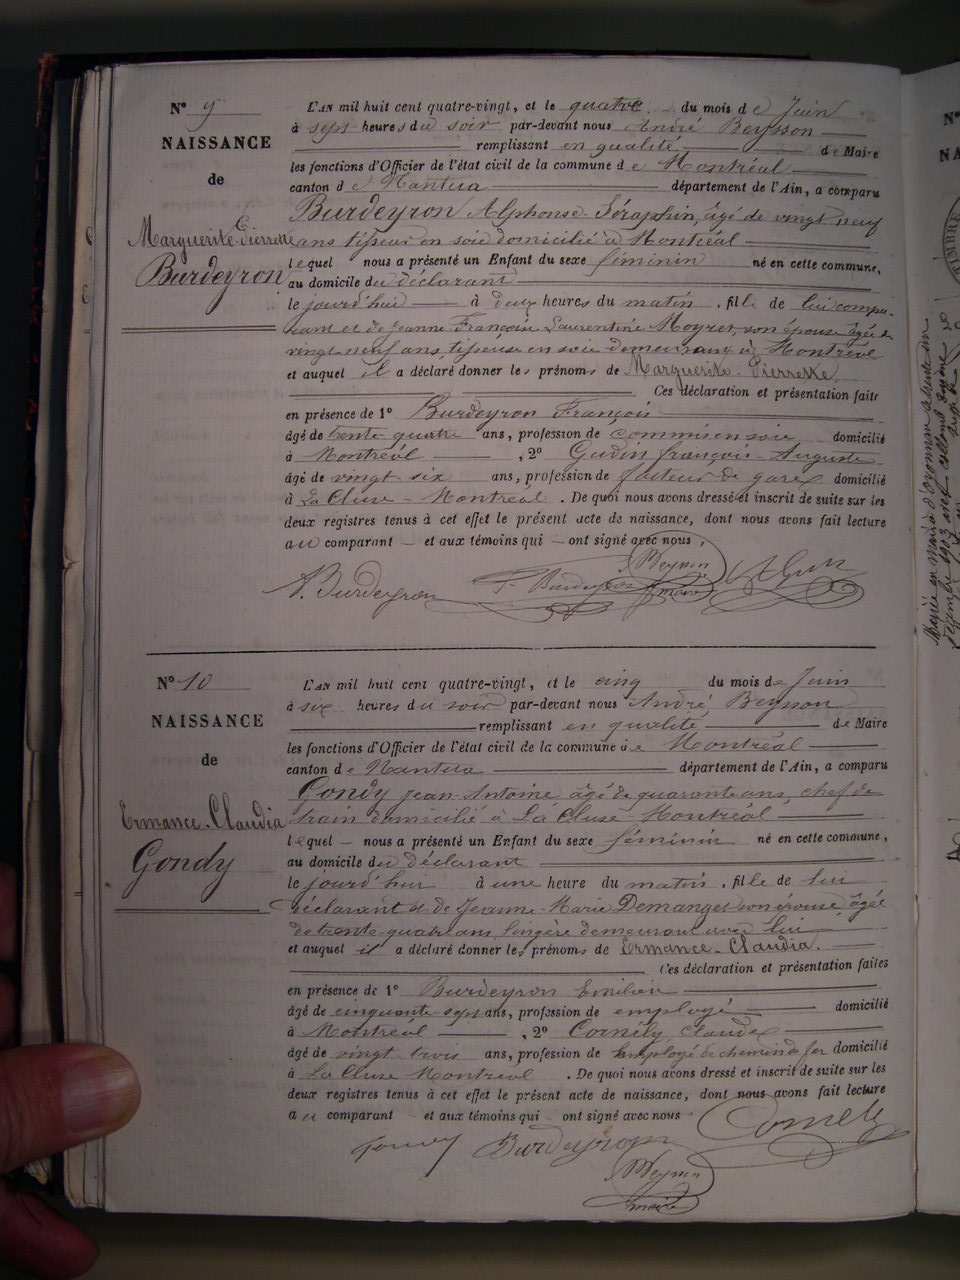 N° 9
NAISSANCE
de
Marguerite-Pierrette
Burdeyron
L'AN mil huit cent quatre-vingt, et le quatre du mois de Juin
à sept heures du soir par-devant nous André Beysson
remplissant en qualité de Maire
les fonctions d'Officier de l'état civil de la commune de Montréal
canton de Nantua département de l'Ain, a comparu
Burdeyron Alphonse-Séraphin, âgé de vingt neuf
ans tisseur en soie domicilié à Montréal
lequel nous a présenté un Enfant du sexe féminin né en cette commune,
au domicile du déclarant
le jourd'hui à deux heures du matin, fille de lui compa-
rant et de Jeanne Françoise Laurentine Moyret, son épouse âgée de
vingt neuf ans, tisseuse en soie demeurant à Montréal
et auquel il a déclaré donner les prénoms de Marguerite-Pierrette.
Ces déclaration et présentation faite
en présence de 1° Burdeyron François
âgé de trente quatre ans, profession de commis en soie domicilié
à Montréal, 2° Gudin françois-Auguste
âgé de vingt six ans, profession de facteur de gare domicilié
à La Cluse-Montréal. De quoi nous avons dressé et inscrit de suite sur les
deux registres tenus à cet effet le présent acte de naissance, dont nous avons fait lecture
au comparant et aux témoins qui ont signé avec nous,
A. Burdeyron F. Burdeyron Beysson
maire
N° 10
NAISSANCE
de
Ermance-Claudia
Gondy
L'AN mil huit cent quatre-vingt, et le cinq du mois de Juin
à six heures du soir par-devant nous André Beysson
remplissant en qualité de Maire
les fonctions d'Officier de l'état civil de la commune de Montréal
canton de Nantua département de l'Ain, a comparu
Gondy Jean-Antoine âgé de quarante ans, chef de
train domicilié à La Cluse-Montréal
lequel nous a présenté un Enfant du sexe féminin né en cette commune,
au domicile du déclarant
le jourd'hui à une heure du matin, fille de lui
déclarant et de Jeanne-Marie Demanget son épouse, âgée
de trente-quatre ans, lingère demeurant avec lui
et auquel il a déclaré donner les prénoms de Ermance-Claudia.
Ces déclaration et présentation faites
en présence de 1° Burdeyron Emilien
âgé de cinquante sept ans, profession de employé domicilié
à Montréal, 2° Cornély Claude
âgé de vingt trois ans, profession de employé de chemin de fer domicilié
à La Cluse Montréal. De quoi nous avons dressé et inscrit de suite sur les
deux registres tenus à cet effet le présent acte de naissance, dont nous avons fait lecture
au comparant et aux témoins qui ont signé avec nous
Gondy Burdeyron Cornély
Beysson
maire
N°
NA
TIMBRE
Mariée en mairie d'Oyonnax
1903 avec